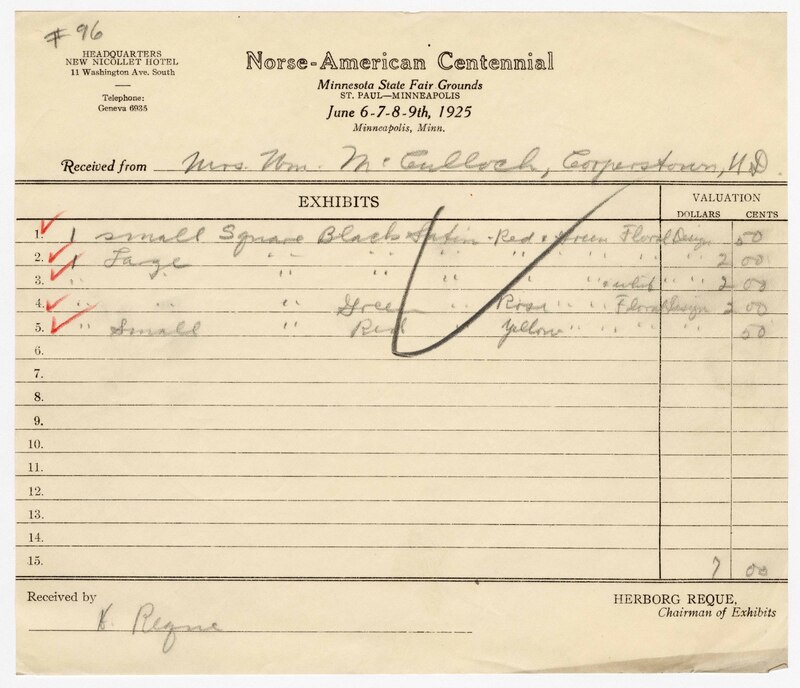 # 96
HEADQUARTERS
NEW NICOLLET HOTEL
11 Washington Ave. South
Telephone:
Geneva 6935
Norse-American Centennial
Minnesota State Fair Grounds
ST. PAUL—MINNEAPOLIS
June 6-7-8-9th, 1925
Minneapolis, Minn.
Received from Mrs. Wm. McCulloch, Cooperstown, N.D.
EXHIBITS VALUATION
DOLLARS CENTS
1. 1 small Square Black Satin - Red & Green Floral Design 50
2. 1 Large " " " " " " " " 2 00
3. " " " " " " " " 2 00
4. " " " Green " Rose " " Floral Design 2 00
5. " Small " Red " Yellow " " " " 50
6.
7.
8.
9.
10.
11.
12.
13.
14.
15. 7 00
Received by H. Reque
HERBORG REQUE,
Chairman of Exhibits